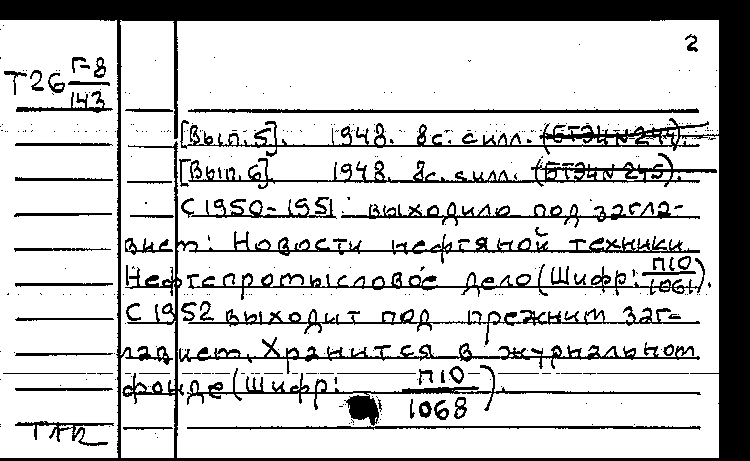 2
Т26 Г-8/143
[Вып. 5]. 1948. 8с. с илл. (БТЭИ № 244).
[Вып. 6]. 1948. 8с. с илл. (БТЭИ № 245).
С 1950-1951 выходило под загла-
вием: Новости нефтяной техники.
Нефтепромысловое дело (Шифр: П10/1061).
С 1952 выходит под прежним заг-
лавием. Хранится в журнальном
фонде (Шифр: П10/1068).